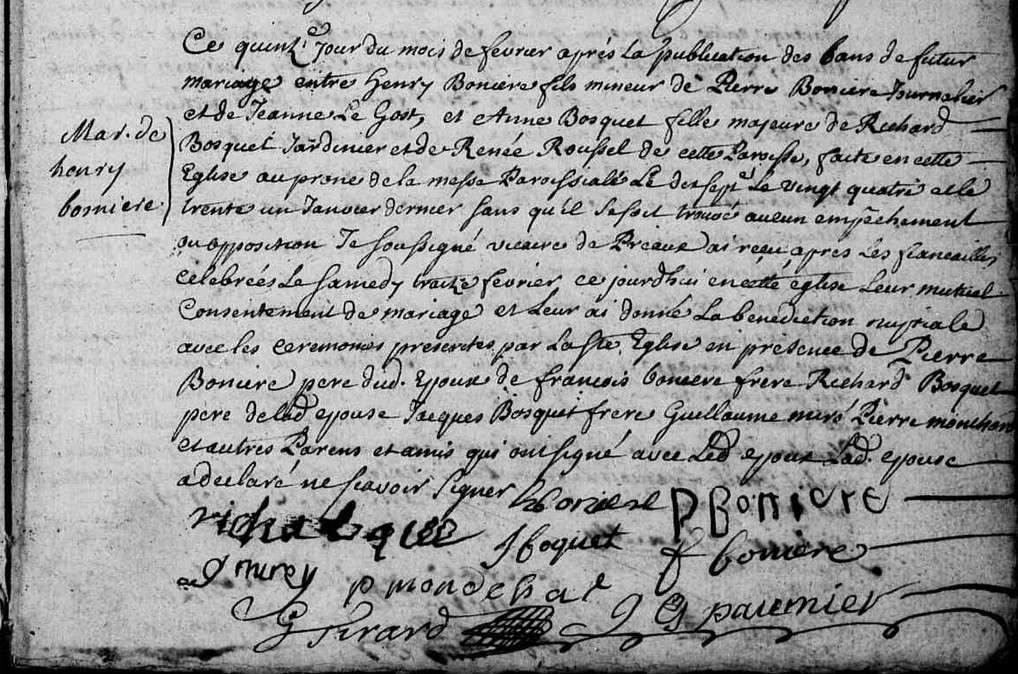 Mar. de
henry
boniere.
Ce quinz.e Jour du mois de fevrier aprés la publication des bans de futur
mariage entre henry Boniere fils mineur de Pierre Boniere Journalier
et de Jeanne Le Gost, et Anne Bosquet fille majeure de Richard
Bosquet Jardinier et de Renée Roussel de cette Paroisse, faite en cette
Eglise au prone de la messe Paroissiale Le dix sept.e Le vingt quatre et le
trente un Janvier dernier sans qu'il se soit trouvé aucun empêchement
ou opposition Je soussigné vicaire de Preaux ai reçu, aprés Les fiancailles
celebrées Le Samedy treize fevrier, ce jourd'hui en cette église Leur mutuel
Consentement de mariage et Leur ai donné La benediction nuptiale
avec les ceremonies prescrites par La Ste Eglise en présence de Pierre
Boniere pere dud. Epoux de francois boniere frere Richard Bosquet
pere de lad epouse Jacques Bosquet frere Guillaume Pierre
et autres Parens et amis qui ont signé avec Led epoux Lad. epouse
a declaré ne scavoir signer boniere P Boniere
J boquet f boniere
p mondehat
paumier